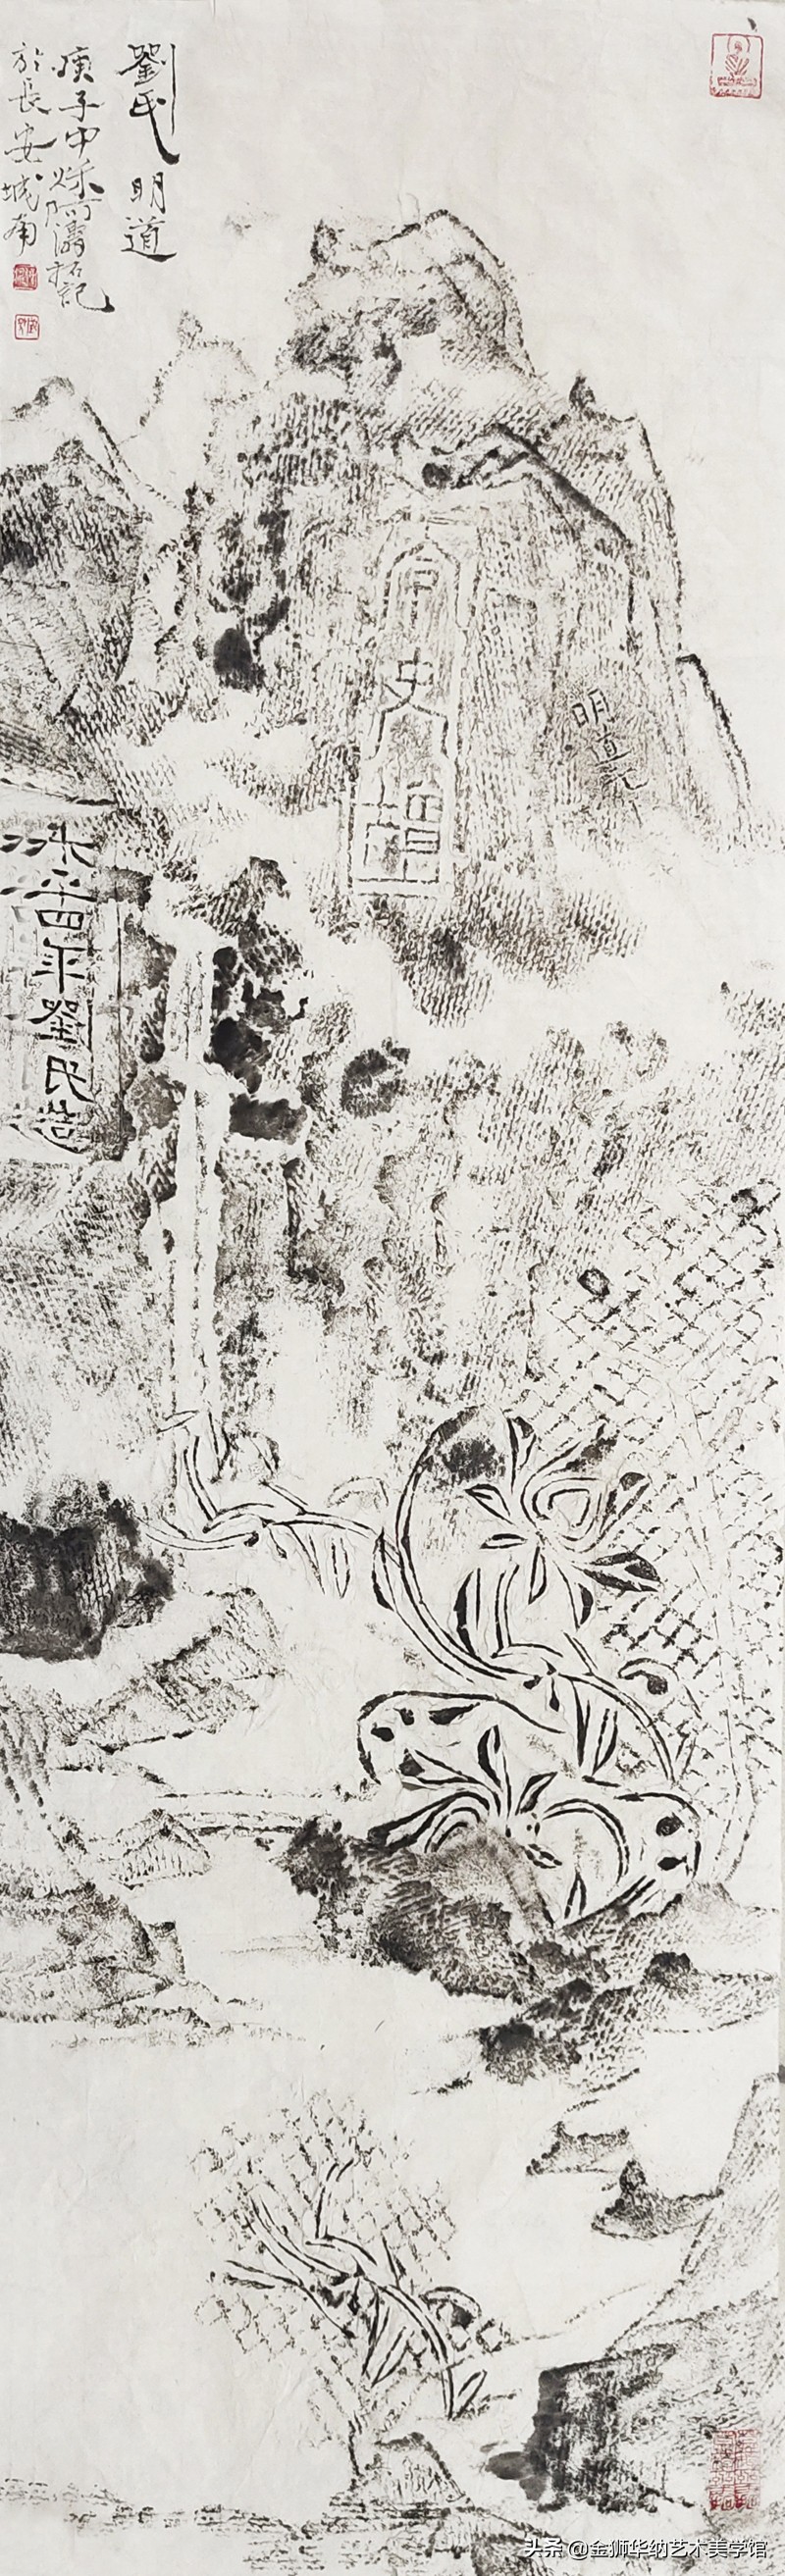 劉氏 明道
庚子中秋阿濤拓記
於長安城南
史
明道記
永平四年劉氏造
头条 @金狮华纳艺术美学馆